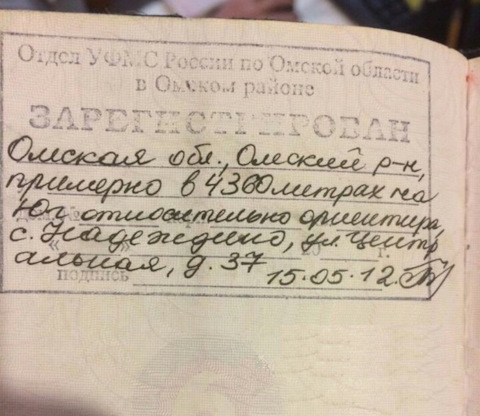 Отдел УФМС России по Омской области
в Омском районе
ЗАРЕГИСТРИРОВАН
Омская обл., Омский р-н,
примерно в 4360 метрах на
Юг относительно ориентира,
с. Надеждино, ул Центр
альная, д. 37
подпись 15.05.12.